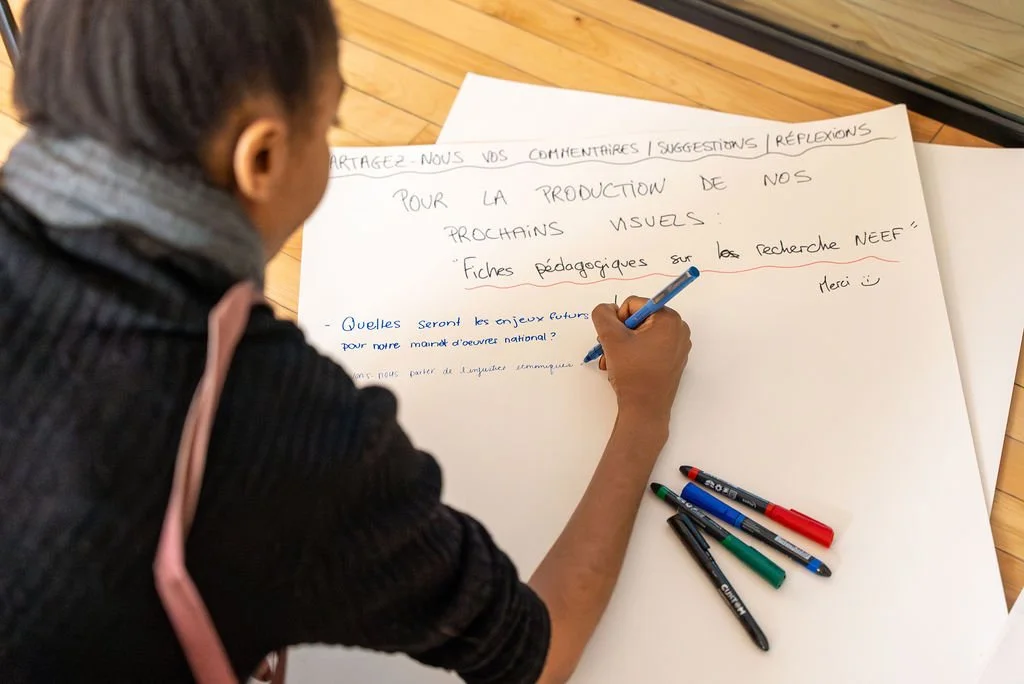 ARTAGEZ-NOUS VOS COMMENTAIRES / SUGGESTIONS / RÉFLEXIONS
POUR LA PRODUCTION DE NOS
PROCHAINS VISUELS :
"Fiches pédagogiques sur les recherche NEEF"
Merci :)
- Quelles seront les enjeux futurs
pour notre mainèt d'oeuvres national ?
nous parler de
CUSTOM